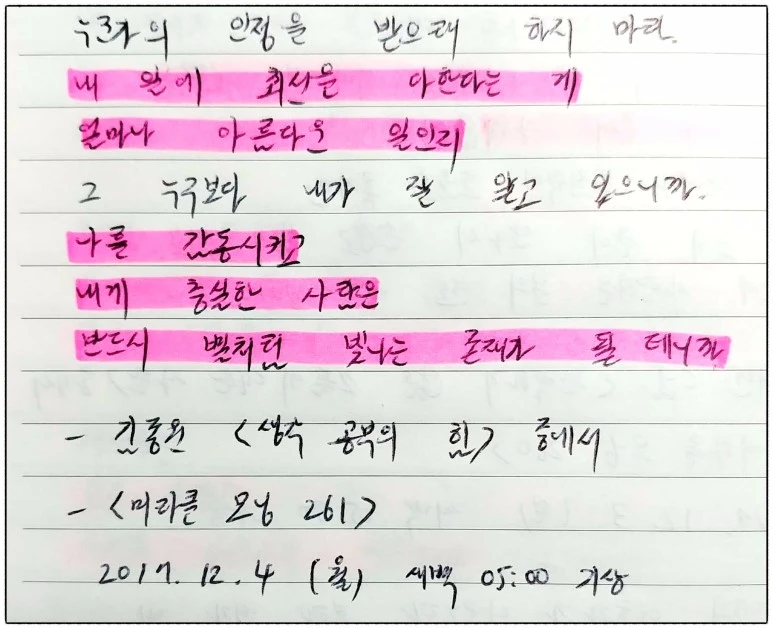 누군가의 인정을 받으려 하지 마라.
내 안에 최선을 다한다는 게
얼마나 아름다운 일인지
그 누구보다 내가 잘 알고 있으니까.
나를 감동시키고
내게 충실한 사람은
반드시 별처럼 빛나는 존재가 될 테니까
- 김종원 <생각 공부의 힘> 중에서
- <미라클 모닝 261>
2017. 12. 4 (월) 새벽 05:00 기상